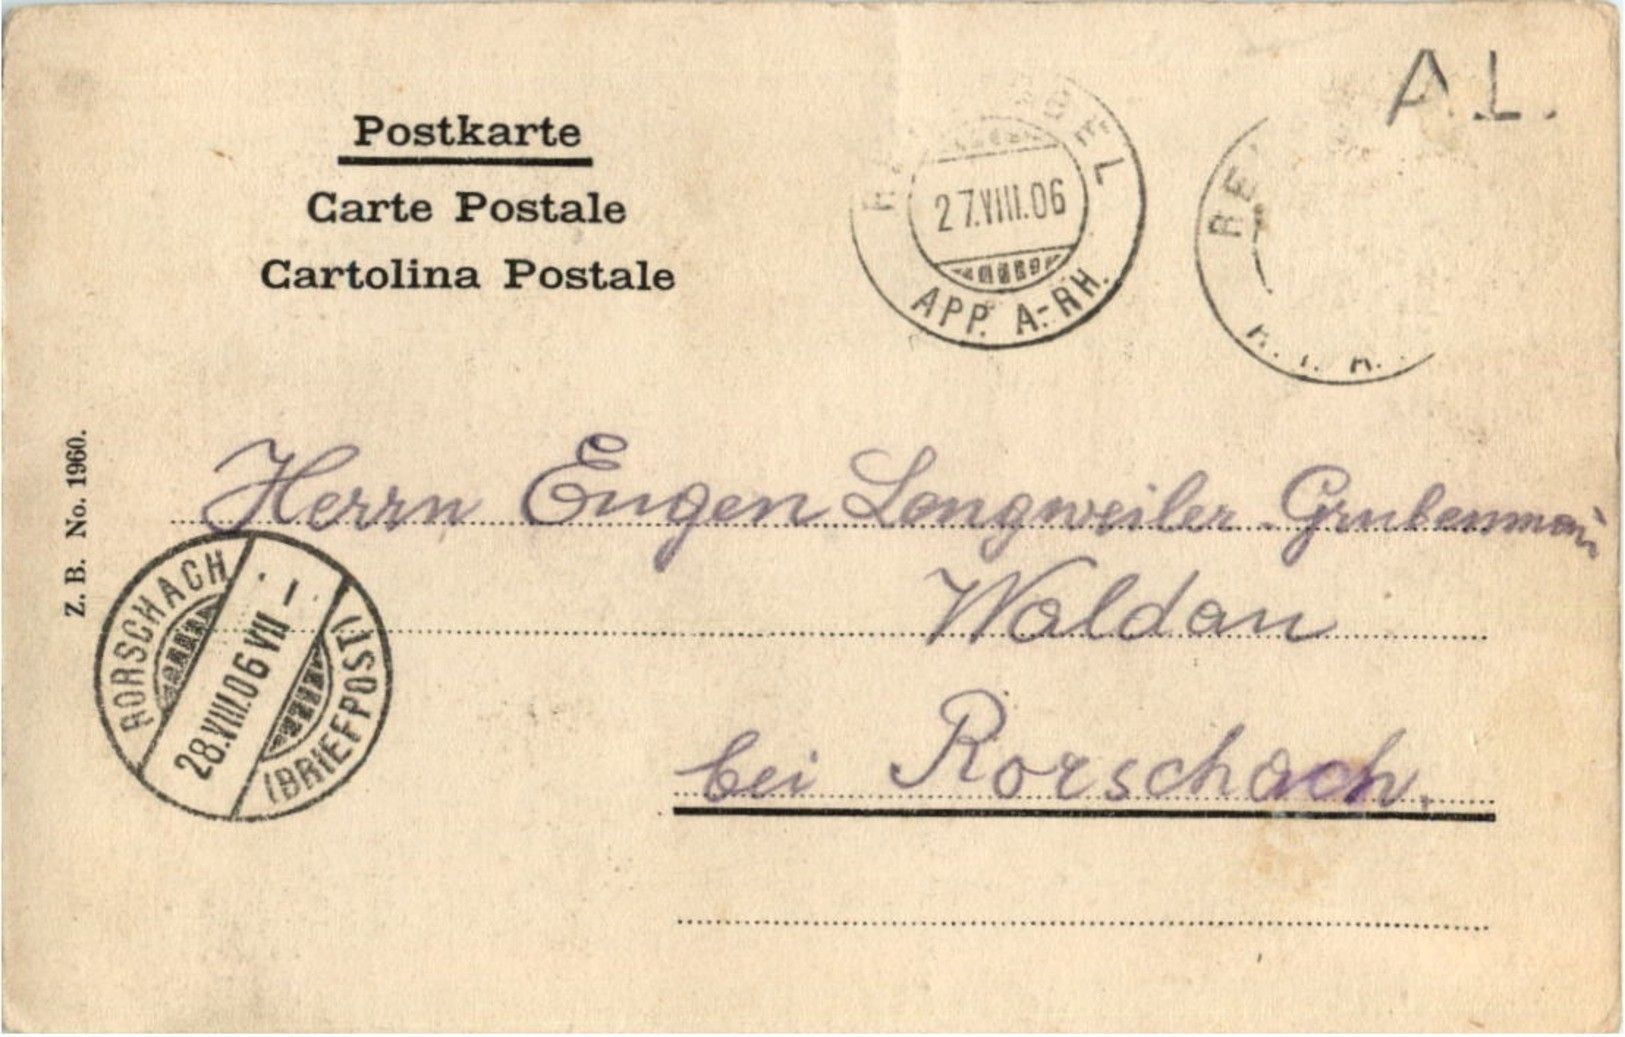 A.L.
Postkarte
Carte Postale
Cartolina Postale
27.VIII.06
APP. A.-RH.
Z. B. No. 1960.
Herrn Eugen Langweiler-Grubenmann
Waldau
bei Rorschach.
RORSCHACH
28.VIII.06 VII –
(BRIEFPOST)